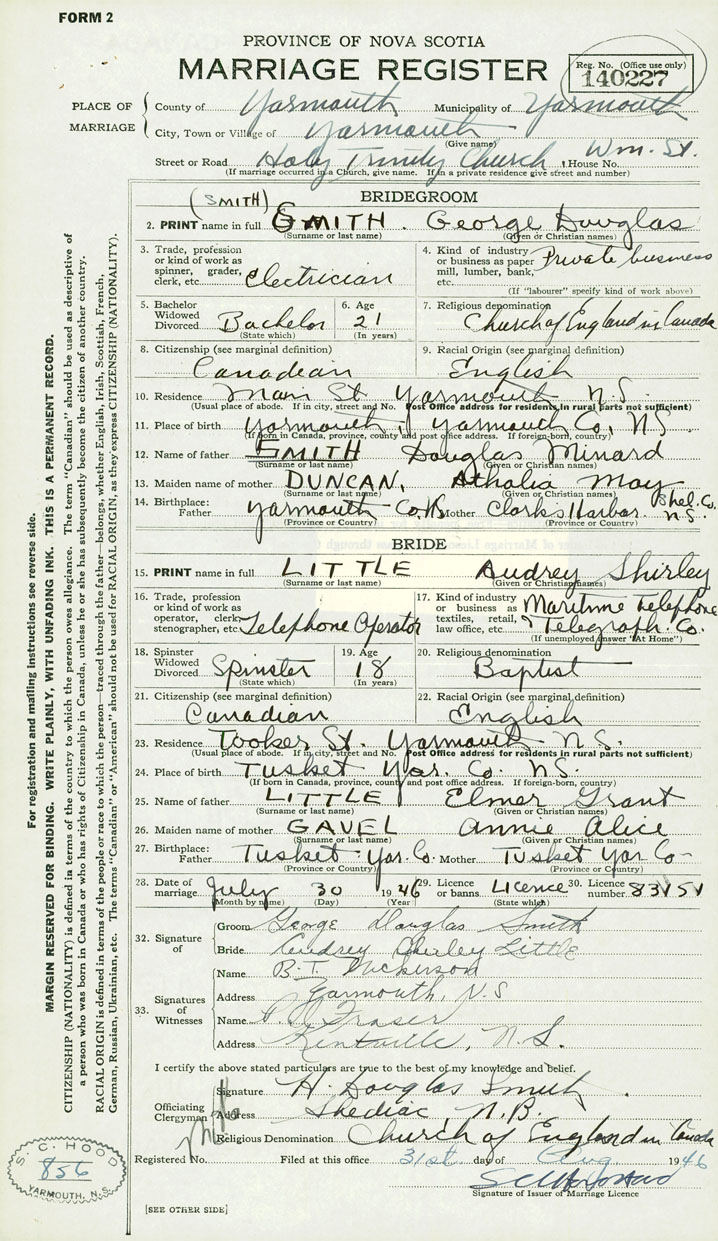 FORM 2
PROVINCE OF NOVA SCOTIA
MARRIAGE REGISTER
Reg. No. (Office use only)
140227
PLACE OF MARRIAGE
County of Yarmouth Municipality of Yarmouth
City, Town or Village of Yarmouth
(Give name)
Street or Road Holy Trinity Church, House No. Wm. St.
(If marriage occurred in a Church, give name. If in a private residence give street and number)
BRIDEGROOM
(SMITH)
2. PRINT name in full SMITH. George Douglas
(Surname or last name) (Given or Christian names)
3. Trade, profession or kind of work as spinner, grader, clerk, etc. Electrician
4. Kind of industry or business as paper mill, lumber, bank, etc. Private business
(If "labourer" specify kind of work above)
5. Bachelor Widowed Divorced Bachelor
(State which)
6. Age 21
(In years)
7. Religious denomination
Church of England in Canada
8. Citizenship (see marginal definition)
Canadian
9. Racial Origin (see marginal definition)
English
10. Residence Main St Yarmouth N.S.
(Usual place of abode. If in city, street and No. Post Office address for residents in rural parts not sufficient)
11. Place of birth Yarmouth, Yarmouth Co, N.S.
(If born in Canada, province, county and post office address. If foreign-born, country)
12. Name of father SMITH Douglas Minard
(Surname or last name) (Given or Christian names)
13. Maiden name of mother DUNCAN, Athalia May
(Surname or last name) (Given or Christian names)
14. Birthplace: Father Yarmouth Co. N.S. Mother Clarks Harbor. Shel. Co. N.S.
(Province or Country) (Province or Country)
BRIDE
15. PRINT name in full LITTLE Audrey Shirley
(Surname or last name) (Given or Christian names)
16. Trade, profession or kind of work as operator, clerk, stenographer, etc. Telephone Operator
17. Kind of industry or business as textiles, retail, law office, etc. Maritime Telephone & Telegraph Co.
(If unemployed answer "At Home")
18. Spinster Widowed Divorced Spinster
(State which)
19. Age 18
(In years)
20. Religious denomination
Baptist
21. Citizenship (see marginal definition)
Canadian
22. Racial Origin (see marginal definition)
English
23. Residence Tooker St. Yarmouth N.S.
(Usual place of abode. If in city, street and No. Post Office address for residents in rural parts not sufficient)
24. Place of birth Tusket Yar. Co. N.S.
(If born in Canada, province, county and post office address. If foreign-born, country)
25. Name of father LITTLE Elmer Grant
(Surname or last name) (Given or Christian names)
26. Maiden name of mother GAVEL Annie Alice
(Surname or last name) (Given or Christian names)
27. Birthplace: Father Tusket Yar. Co. Mother Tusket Yar Co
(Province or Country) (Province or Country)
28. Date of marriage July 30 1946
(Month by name) (Day) (Year)
29. Licence or banns Licence
(State which)
30. Licence number 83151
32. Signature of
Groom George Douglas Smith
Bride Audrey Shirley Little
33. Signatures of Witnesses
Name B. T. Nickerson
Address Yarmouth, N.S
Name Fraser
Address Kentville, N.S.
I certify the above stated particulars are true to the best of my knowledge and belief.
Officiating Clergyman
Signature H. Douglas Smith
Address Shediac, N.B.
Religious Denomination Church of England in Canada
Registered No. Filed at this office 31st day of Aug 1946
Signature of Issuer of Marriage Licence
[SEE OTHER SIDE]
S. C. HOOD
856
YARMOUTH, N.S.
For registration and mailing instructions see reverse side.
MARGIN RESERVED FOR BINDING. WRITE PLAINLY, WITH UNFADING INK. THIS IS A PERMANENT RECORD.
CITIZENSHIP (NATIONALITY) is defined in terms of the country to which the person owes allegiance. The term "Canadian" should be used as descriptive of
a person who was born in Canada or who has rights of Citizenship in Canada, unless he or she has subsequently become the citizen of another country.
RACIAL ORIGIN is defined in terms of the people or race to which the person—traced through the father—belongs, whether English, Irish, Scottish, French,
German, Russian, Ukrainian, etc. The terms "Canadian" or "American" should not be used for RACIAL ORIGIN, as they express CITIZENSHIP (NATIONALITY).